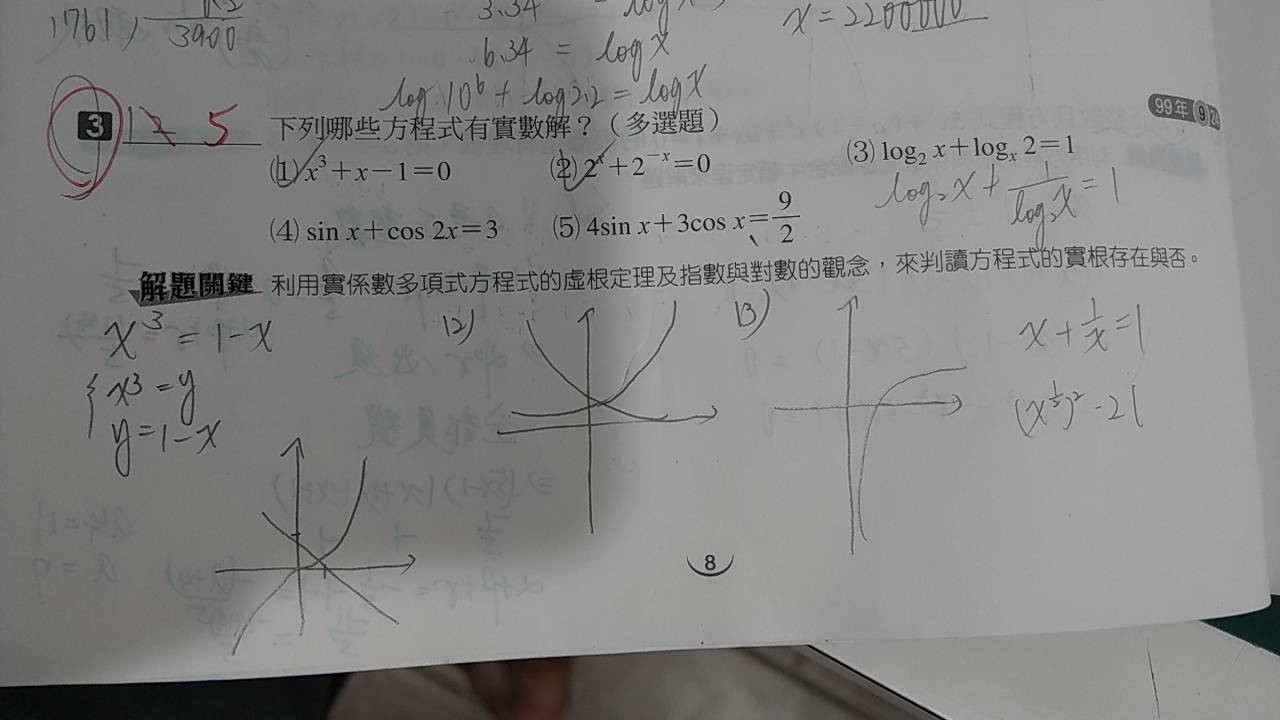 1761,
3900
3.34
6.34 = log x
x = 2200000
log 10⁶ + log 2.2 = log x
99年
3 12 5 下列哪些方程式有實數解?(多選題)
(1) x³+x−1=0 (2) 2ˣ+2⁻ˣ=0 (3) log₂ x+logₓ 2=1
log₂x + 1/log₂x = 1
(4) sin x+cos 2x=3 (5) 4sin x+3cos x=9/2
解題關鍵 利用實係數多項式方程式的虛根定理及指數與對數的觀念,來判讀方程式的實根存在與否。
x³ = 1−x
x³ = y
y = 1−x
(2)
(3)
x + 1/x = 1
8